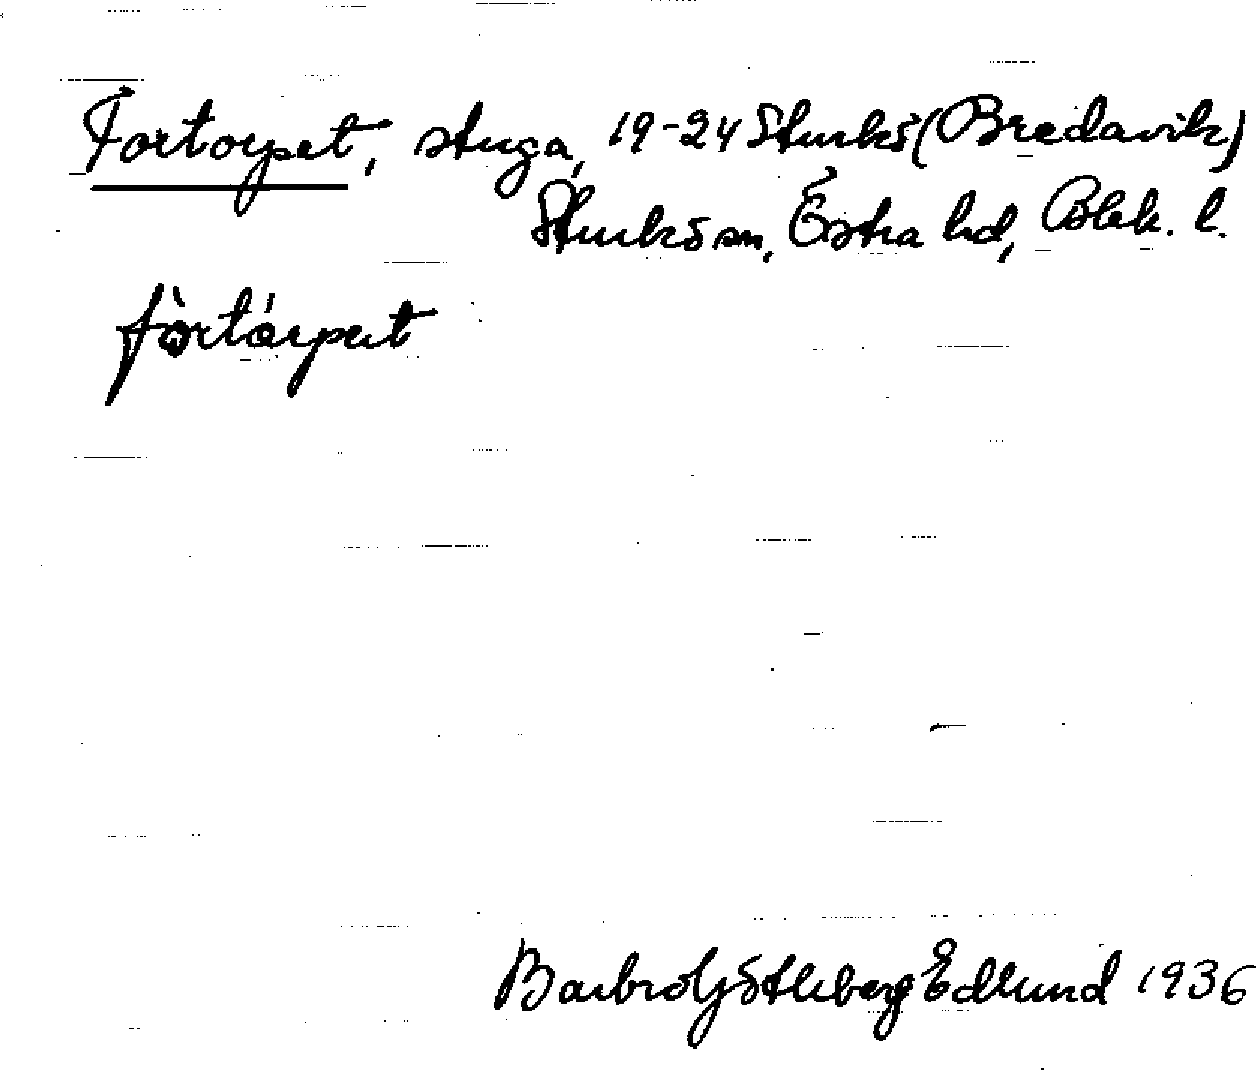 Fortorpet, stuga, 19-24 Sturkö (Bredavik)
Sturkö sn, Östra hd, Blek. l.
fòrtárpet
Barbro Götleberg Edlund 1936